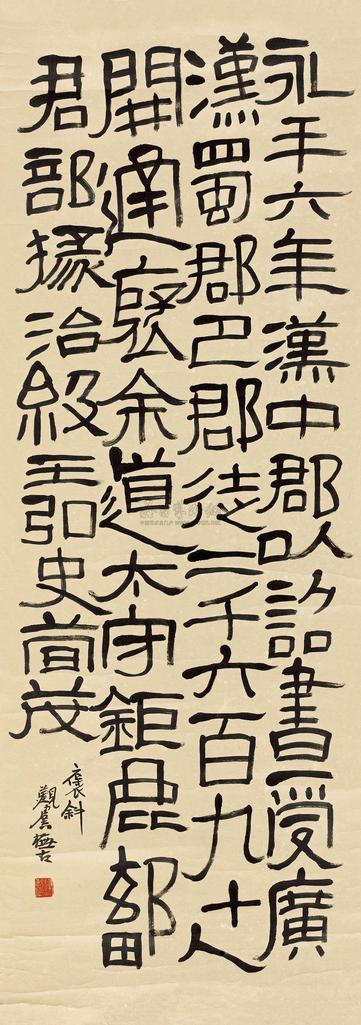 永平六年漢中郡以詔書受廣
漢蜀郡巴郡徒二千六百九十人
開通褒余道太守鉅鹿鄐
君部掾治級王弘史荀茂
褒斜
觀橅古